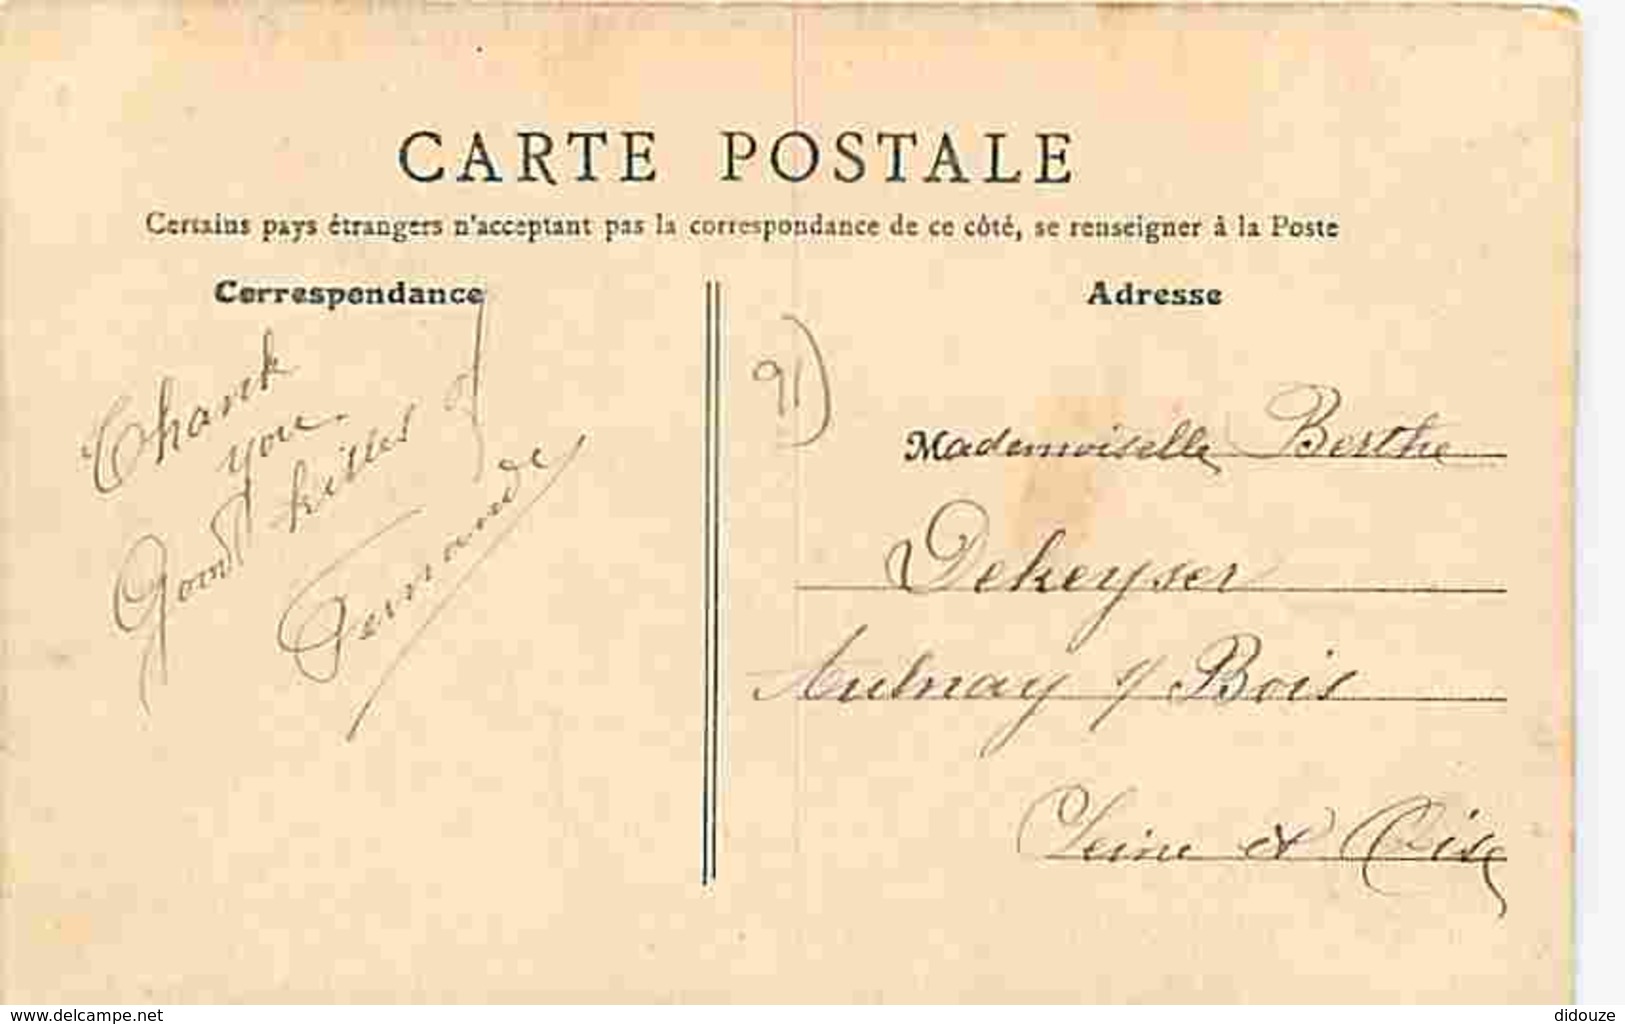 CARTE POSTALE
Certains pays étrangers n'acceptant pas la correspondance de ce côté, se renseigner à la Poste
Correspondance
Thank
you
Good kisses
Fernande
Adresse
91)
Mademoiselle Berthe
Dekeyser
Aulnay s/ Bois
Seine & Oise
www.delcampe.net
didouze